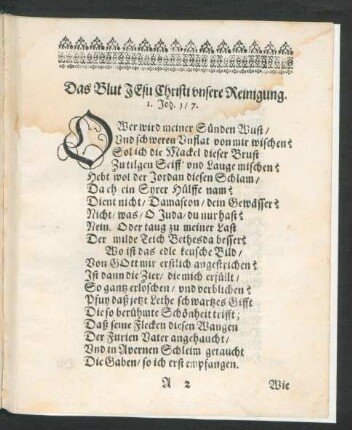 Das Blut JEsu Christi vnsere Reinigung.
1. Joh. 1/ 7.
O Wer wird meiner Sünden Wust/
Vnd schweren Vnflat von mir wischen?
Sol ich die Mackel dieser Brust
Zu tilgen Seiff vnd Lauge mischen?
Hebt wol der Jordan diesen Schlam/
Da ch ein Syrer Hülffe nam?
Dient nicht/ Damascon/ dein Gewässer?
Nicht/ was/ O Juda/ du nur hast?
Nein. Oder taug zu meiner Last
Der milde Teich Bethesda besser?
Wo ist das edle keusche Bild/
Von GOtt mir erstlich angestrichen?
Ist dann die Zier/ die mich erfüllt/
So gantz erloschen/ vnd verblichen?
Pfuy daß jetz Lethe schwartzes Gifft
Die so berühmte Schönheit trifft;
Daß seine Flecken diesen Wangen
Der Furien Vater angehaucht/
Vnd in Avernen Schleim getaucht
Die Gaben/ so ich erst empfangen.
A 2 Wie